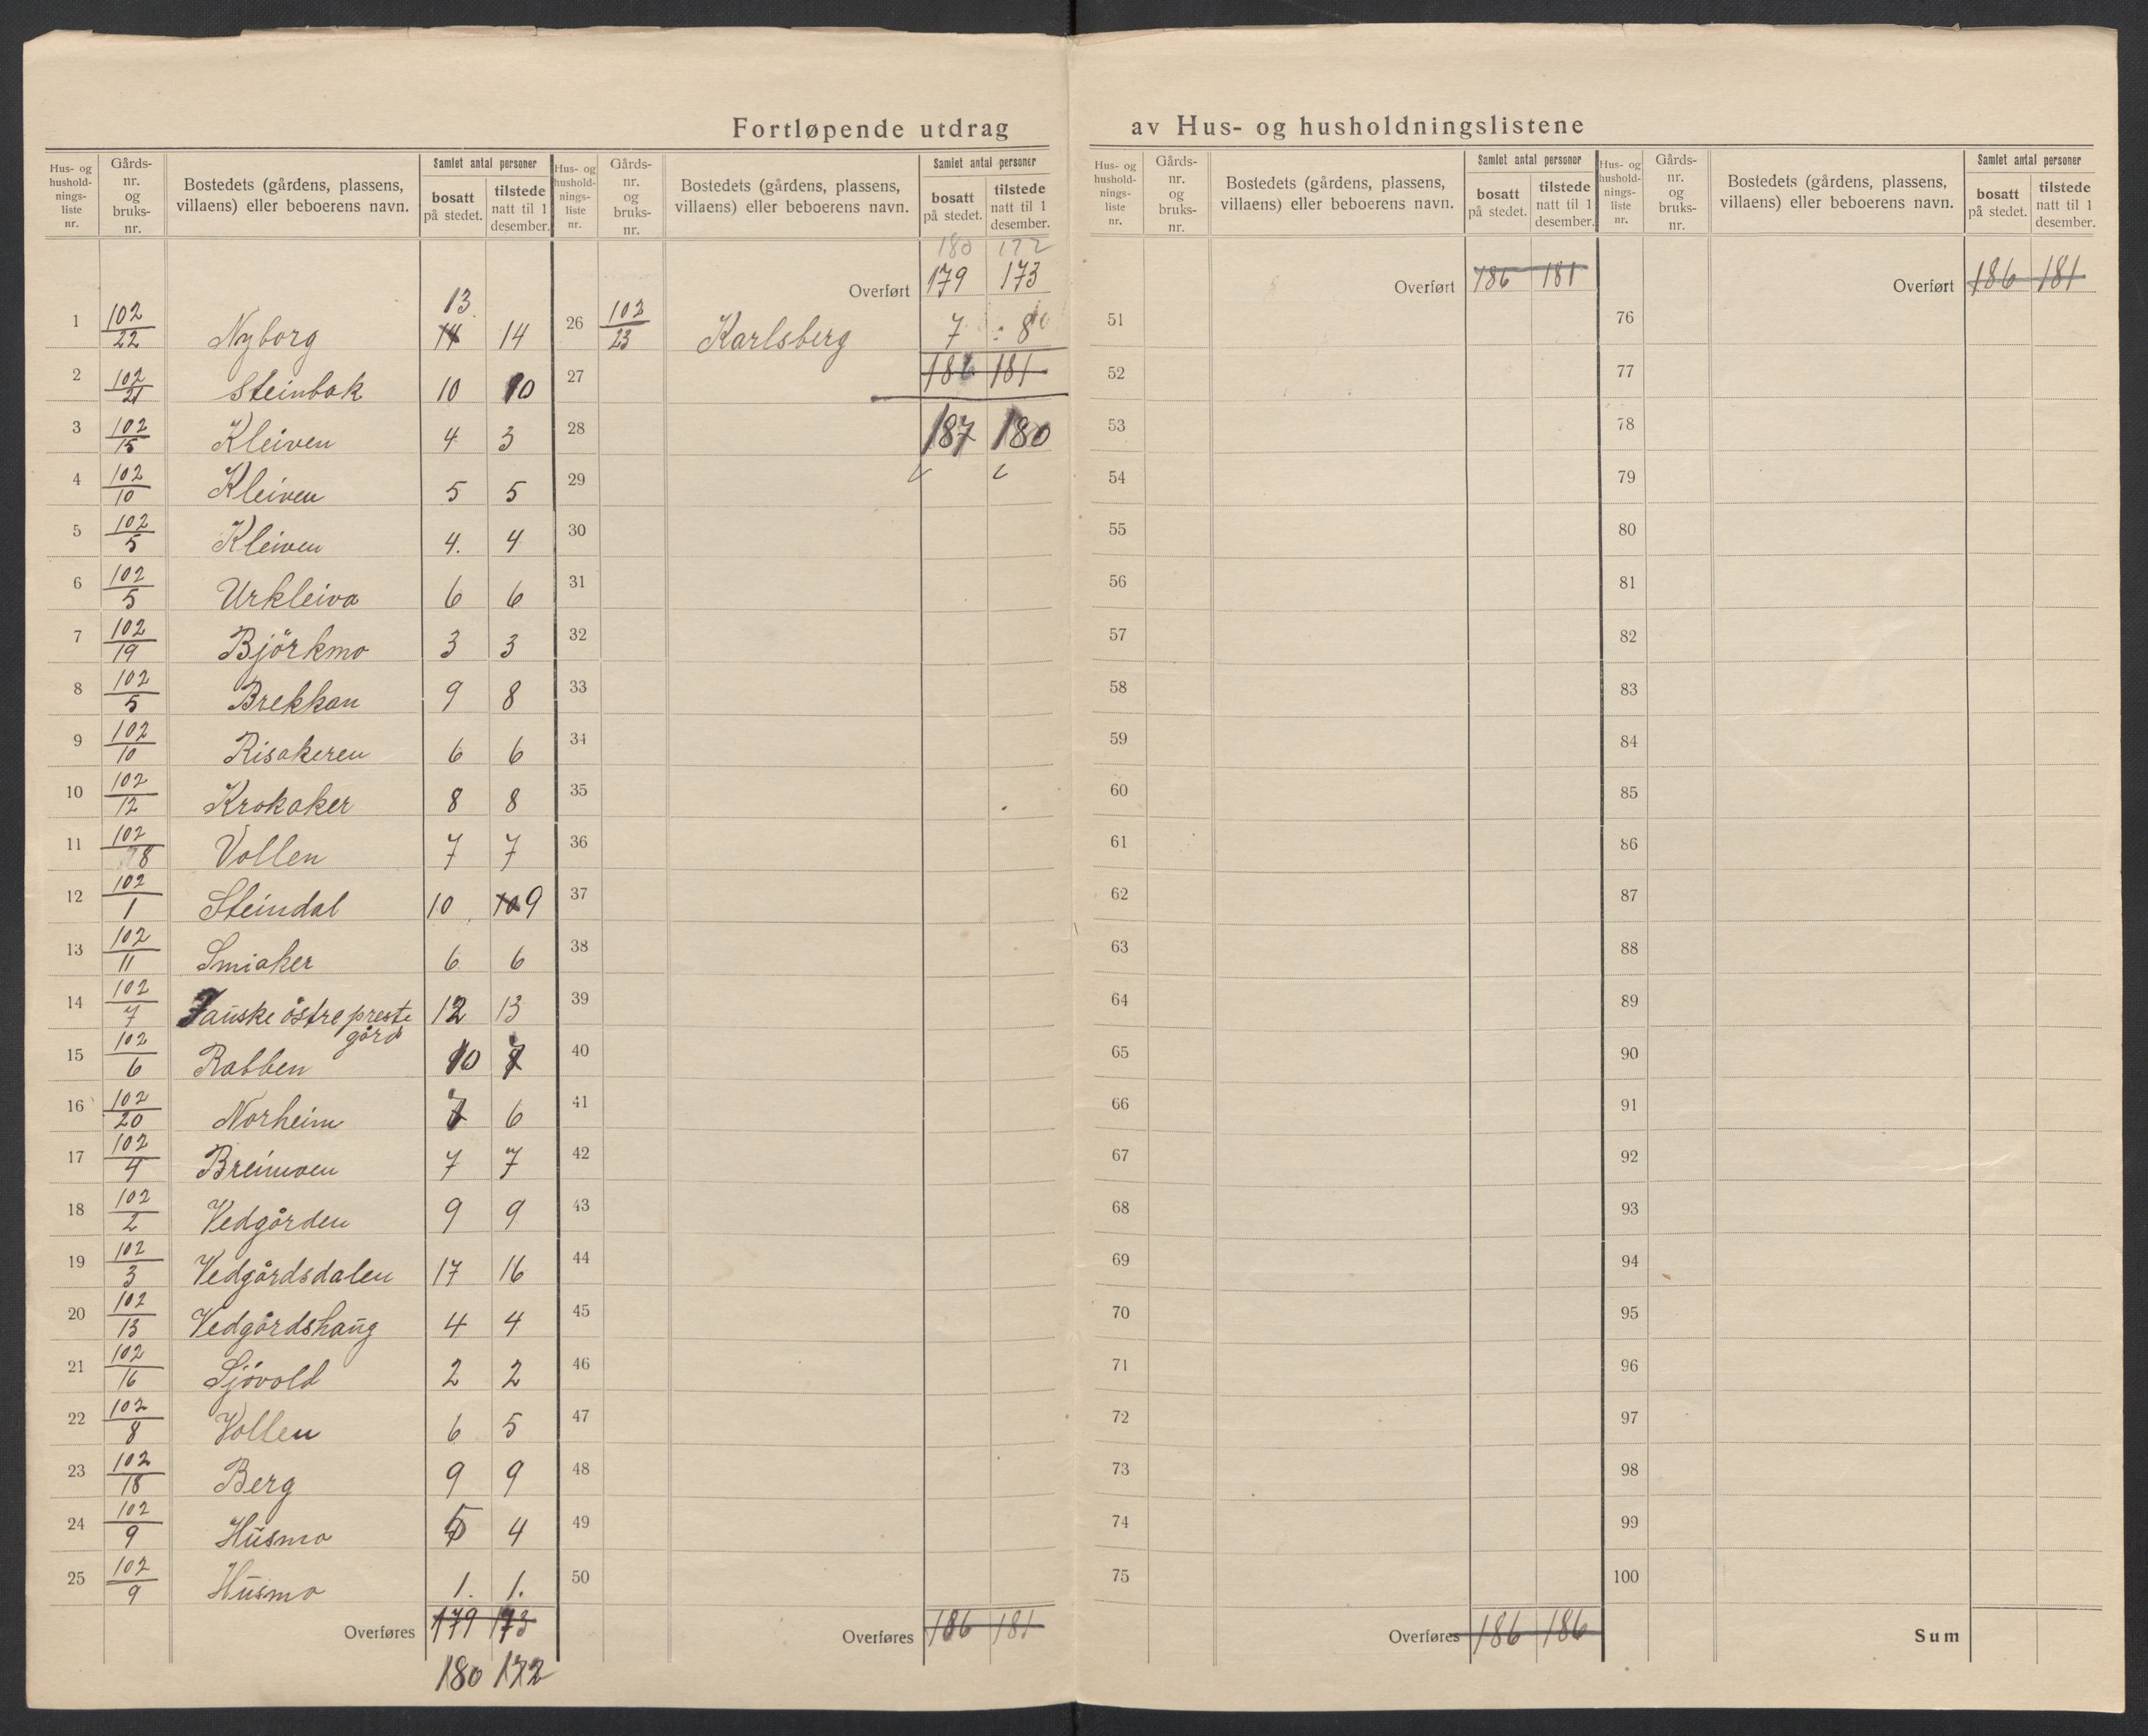 Fortløpende utdrag av Hus- og husholdningslistene
Hus- og husholdnings-liste nr. Gårds-nr. og bruks-nr. Bostedets (gårdens, plassens, villaens) eller beboerens navn. Samlet antal personer bosatt på stedet. tilstede natt til 1 desember.
Hus- og husholdnings-liste nr. Gårds-nr. og bruks-nr. Bostedets (gårdens, plassens, villaens) eller beboerens navn. Samlet antal personer bosatt på stedet. tilstede natt til 1 desember.
Hus- og husholdnings-liste nr. Gårds-nr. og bruks-nr. Bostedets (gårdens, plassens, villaens) eller beboerens navn. Samlet antal personer bosatt på stedet. tilstede natt til 1 desember.
Hus- og husholdnings-liste nr. Gårds-nr. og bruks-nr. Bostedets (gårdens, plassens, villaens) eller beboerens navn. Samlet antal personer bosatt på stedet. tilstede natt til 1 desember.
13
1 102/22 Nyborg 14 14
2 102/21 Steinbak 10 10
3 102/15 Kleiven 4 3
4 102/10 Kleiven 5 5
5 102/5 Kleiven 4. 4
6 102/5 Urkleiva 6 6
7 102/19 Björkmo 3 3
8 102/5 Brekkan 9 8
9 102/10 Risakeren 6 6
10 102/12 Krokaker 8 8
11 102/8 Vollen 7 7
12 102/1 Steindal 10 10 9
13 102/11 Smiaker 6 6
14 102/7 Fauske östre preste 12 13
gård
15 102/6 Rabben 10 7
16 102/20 Norheim 7 6
17 102/4 Breimoen 7 7
18 102/2 Vedgården 9 9
19 102/3 Vedgårdsdalen 17 16
20 102/13 Vedgårdshaug 4 4
21 102/16 Sjövold 2 2
22 102/8 Vollen 6 5
23 102/18 Berg 9 9
24 102/9 Husmo 5 4
25 102/9 Husmo 1. 1.
Overføres 179 173
180 172
180 172
Overført 179 173
26 102/23 Karlsberg 7 : 8
27 186 181
28 187 180
29
30
31
32
33
34
35
36
37
38
39
40
41
42
43
44
45
46
47
48
49
50
Overføres 186 181
Overført 186 181
51
52
53
54
55
56
57
58
59
60
61
62
63
64
65
66
67
68
69
70
71
72
73
74
75
Overføres 186 186
Overført 186 181
76
77
78
79
80
81
82
83
84
85
86
87
88
89
90
91
92
93
94
95
96
97
98
99
100
Sum